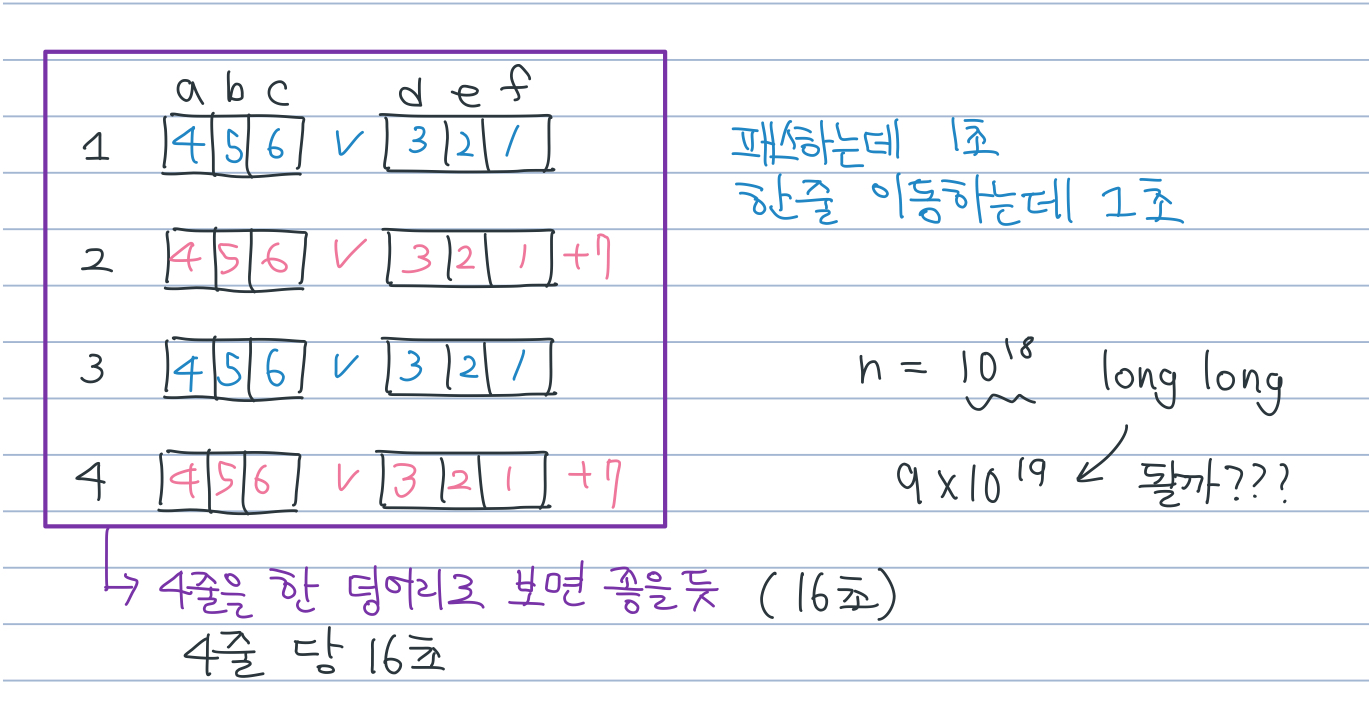 a b c d e f
1 4 5 6 v 3 2 1
패스하는데 1초
한줄 이동하는데 1초
2 4 5 6 v 3 2 1 +7
3 4 5 6 v 3 2 1
n = 10^18 long long
4 4 5 6 v 3 2 1 +7
9 x 10^19 ↙ 될까???
→ 4줄을 한 덩어리로 보면 좋을듯 (16초)
4줄 당 16초